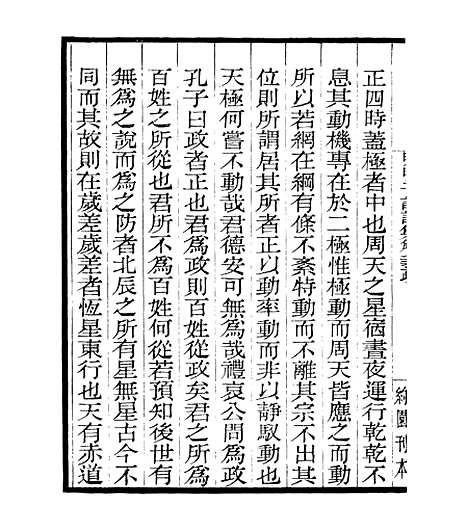 正四時蓋極者中也周天之星宿晝夜運行乾乾不
息其動機專在於二極惟極動而周天皆應之而動
所以若網在綱有條不紊特動而不離其宗不出其
位則所謂居其所者正以動率動而非以靜馭動也
天極何嘗不動哉君德安可無爲哉禮哀公問爲政
孔子曰政者正也君爲政則百姓從政矣君之所爲
百姓之所從也君所不爲百姓何從若預知後世有
無爲之說而爲之防者北辰之所有星無星古今不
同而其故則在歲差歲差者恆星東行也天有赤道
刊本